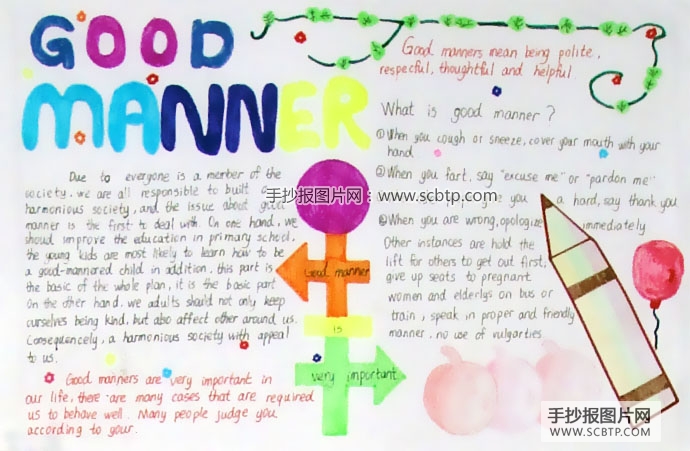 GOOD
MANNER
Good manners mean being polite,
respecful, thoughtful and helpful.
Due to everyone is a member of the
society. we are all responsible to built a
harmonious society, and the issue about good
manner is the first to deal with. On one hand, we
should improve the education in primary school.
the young kids are most likely to learn how to be
a good-mannered child in addition, this part is
the basic of the whole plan, it is the basic part
on the other hand, we adults should not only keep
ourselves being kind, but also affect other around us.
Consequencely, a harmonious society with appeal
to us.
Good manners are very important in
our life, there are many cases that are required
us to behave well. Many people judge you
according to your.
Good manner
is
very important
What is good manner?
①When you cough or sneeze, cover your mouth with your
hand
②When you fart, say "excuse me" or "pardon me"
you a hard, say thank you
③When you are wrong, apologize immediately
Other instances are hold the
lift for others to get out first,
give up seats to pregnant
women and elderlys on bus or
train, speak in proper and friendly
manner, no use of vulgarties
手抄报图片网：www.scbtp.com
手抄报图片网
WWW.SCBTP.COM